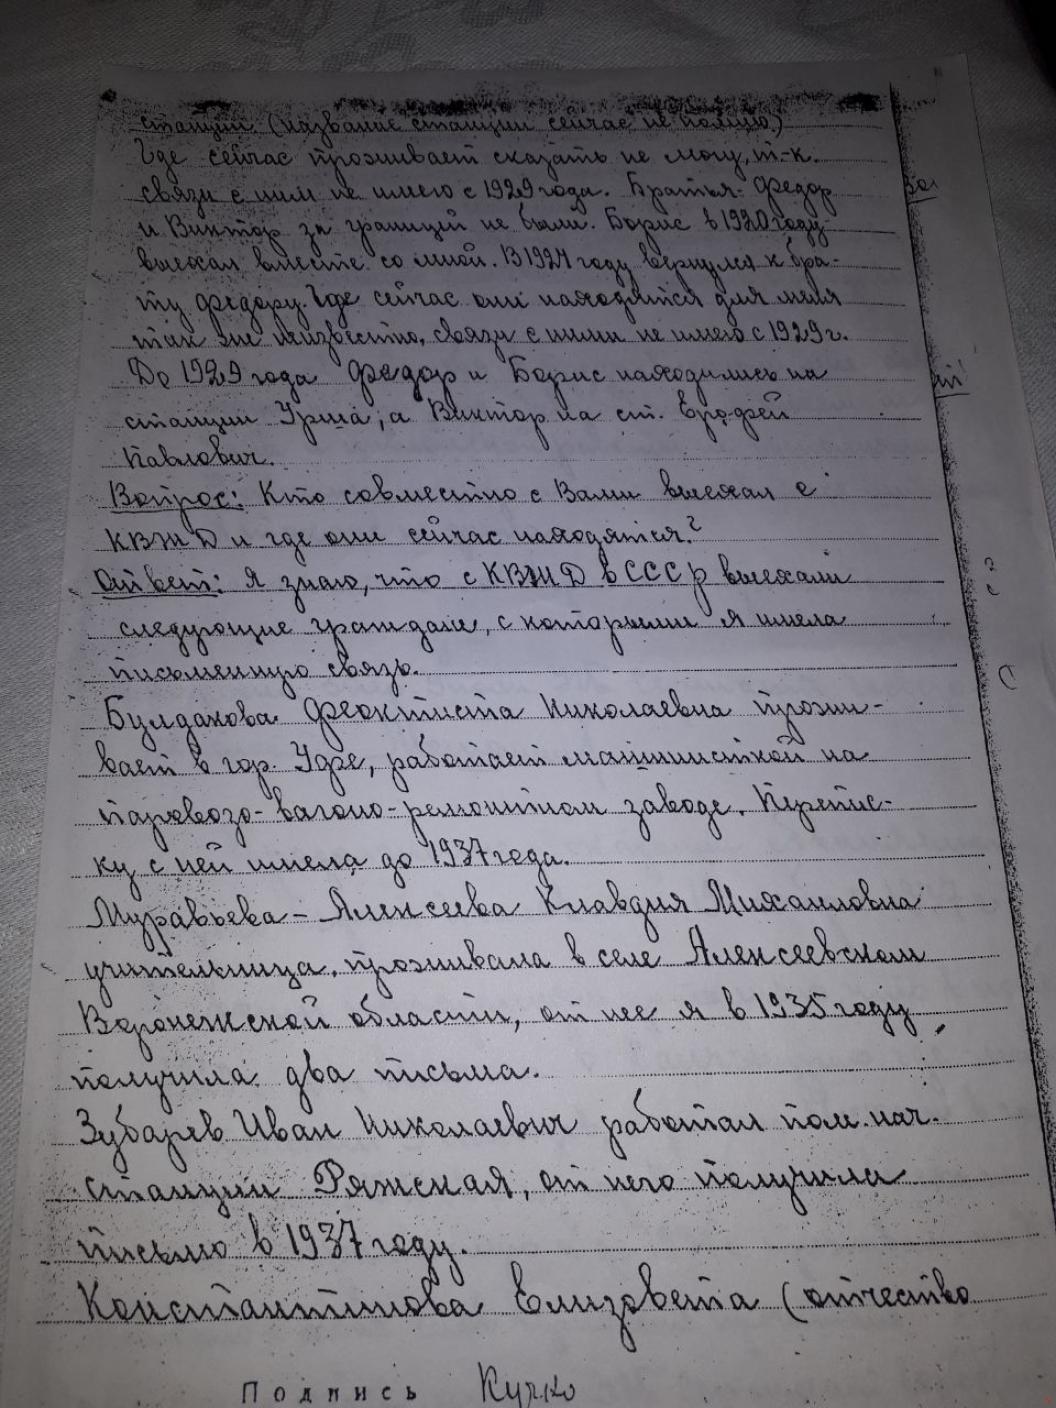 станции (название станции сейчас не помню.)
Где сейчас проживает сказать не могу, т-к.
связи с ним не имею с 1929 года. Братья: Федор
и Виктор за границей не были. Борис в 1920 году
выехал вместе со мной. В 1924 году вернулся к бра-
ту Федору. Где сейчас они находятся для меня
так же неизвестно, связи с ними не имею с 1929 г.
До 1929 года Федор и Борис находились на
станции Урша, а Виктор на ст.
Павлович.
Вопрос: Кто совместно с Вами выехал с
КВЖД и где они сейчас находятся?
Ответ: Я знаю, что с КВЖД в СССР выехали
следующие граждане, с которыми я имела
письменную связь.
Булдакова Феоктиста Николаевна прожи-
вает в гор. Уфе, работает машинисткой на
паровозо-вагоно-ремонтном заводе. Перепис-
ку с ней имела до 1937 года.
Муравьева - Алексеева Клавдия Михаиловна
учительница, проживала в селе Алексеевском
Воронежской области, от нее я в 1935 году
получила два письма.
Зубарев Иван Николаевич работал пом. нач.
станции Ряжская, от него получила
письмо в 1937 году.
Константинова Елизовета (отчество
Подпись Кучко